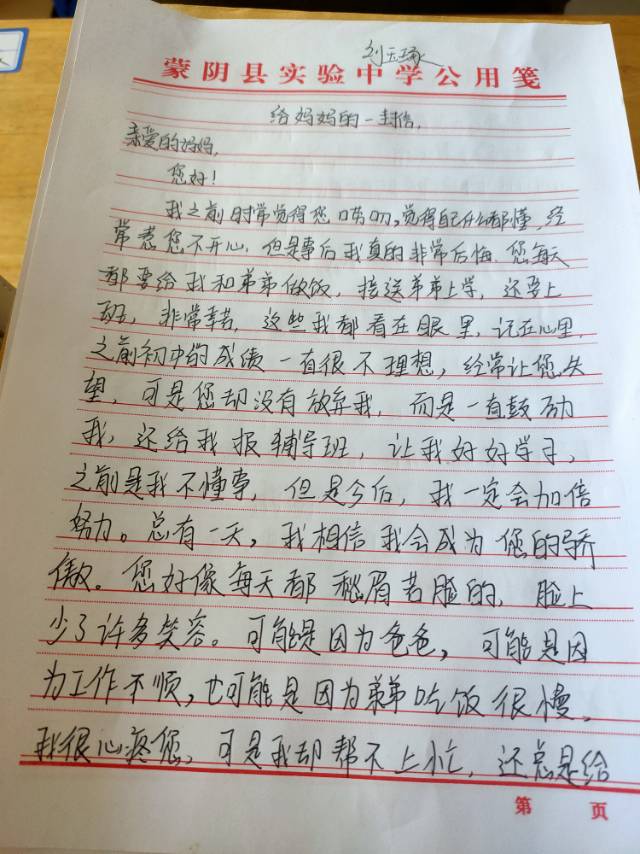 刘玉琢
蒙阴县实验中学公用笺
给妈妈的一封信,
亲爱的妈妈,
您好!
我之前时常觉得您唠叨,觉得自己什么都懂,经
常惹您不开心,但是事后我真的非常后悔.您每天
都要给我和弟弟做饭,接送弟弟上学,还要上
班,非常辛苦,这些我都看在眼里,记在心里.
之前初中的成绩一直很不理想,经常让您失
望,可是您却没有放弃我,而是一直鼓励
我,还给我报辅导班,让我好好学习,
之前是我不懂事,但是今后,我一定会加倍
努力。总有一天,我相信我会成为您的骄
傲。您好像每天都愁眉苦脸的,脸上
少了许多笑容。可能是因为爸爸,可能是因
为工作不顺,也可能是因为弟弟吃饭很慢,
我很心疼您,可是我却帮不上忙,还总是给
第 页